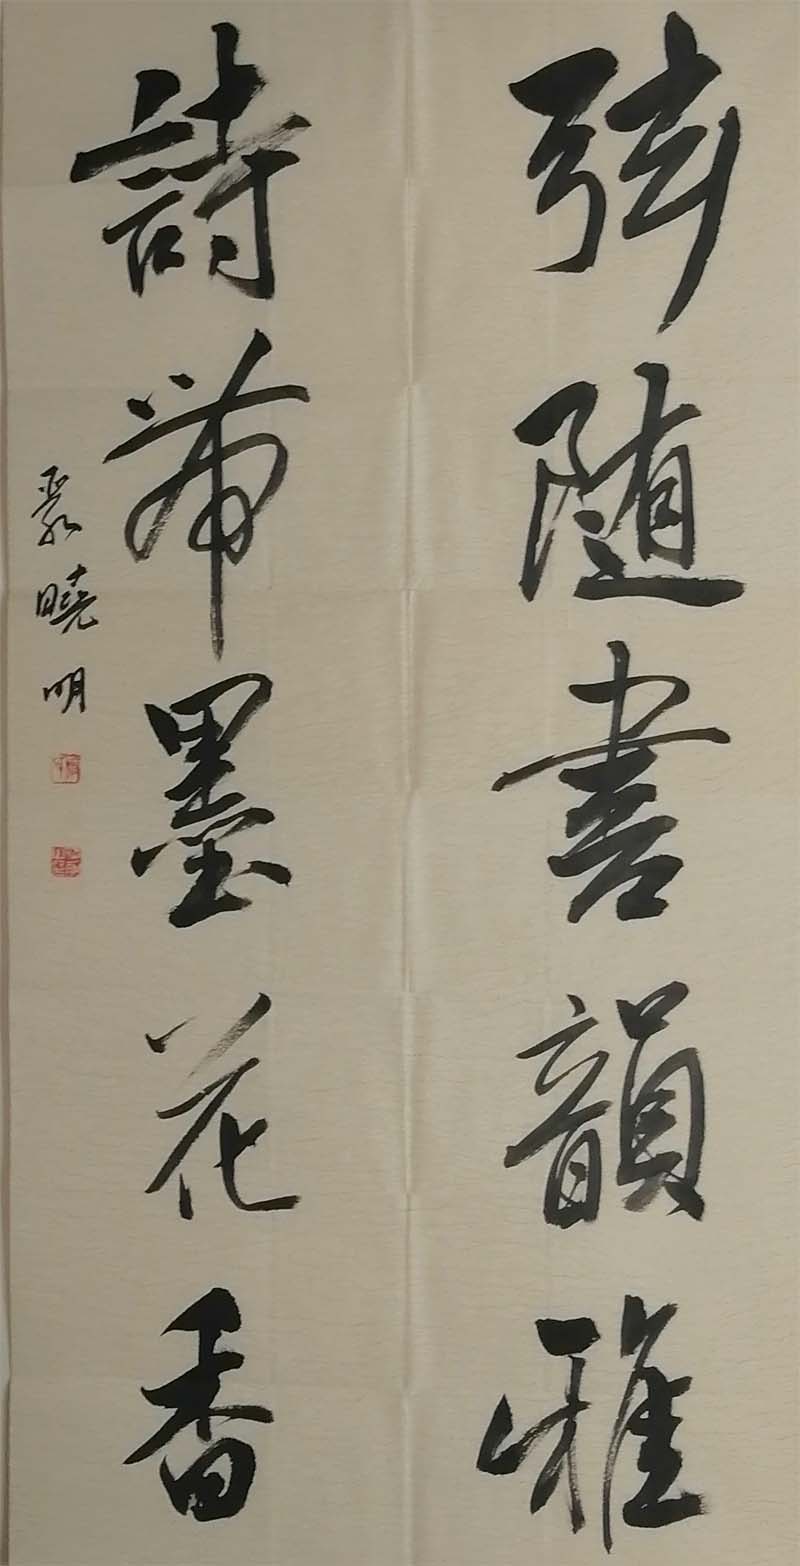 弦随書韻雅
詩帶墨花香
曉明